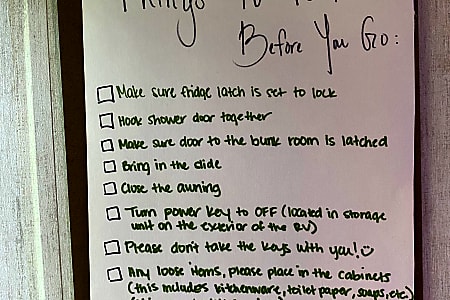 Things To
Before You Go:
Make sure fridge latch is set to lock
Hook shower door together
Make sure door to the bunk room is latched
Bring in the slide
Close the awning
Turn power key to OFF (located in storage
unit on the exterior of the RV)
Please don't take the keys with you!
Any loose items, please place in the cabinets
(this includes kitchenware, toilet paper, soaps, etc)